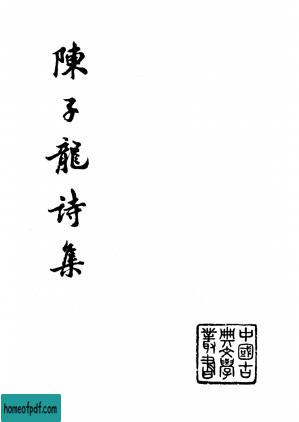 陳子龍詩集
中國古
典文學
叢書
homeofpdf.com